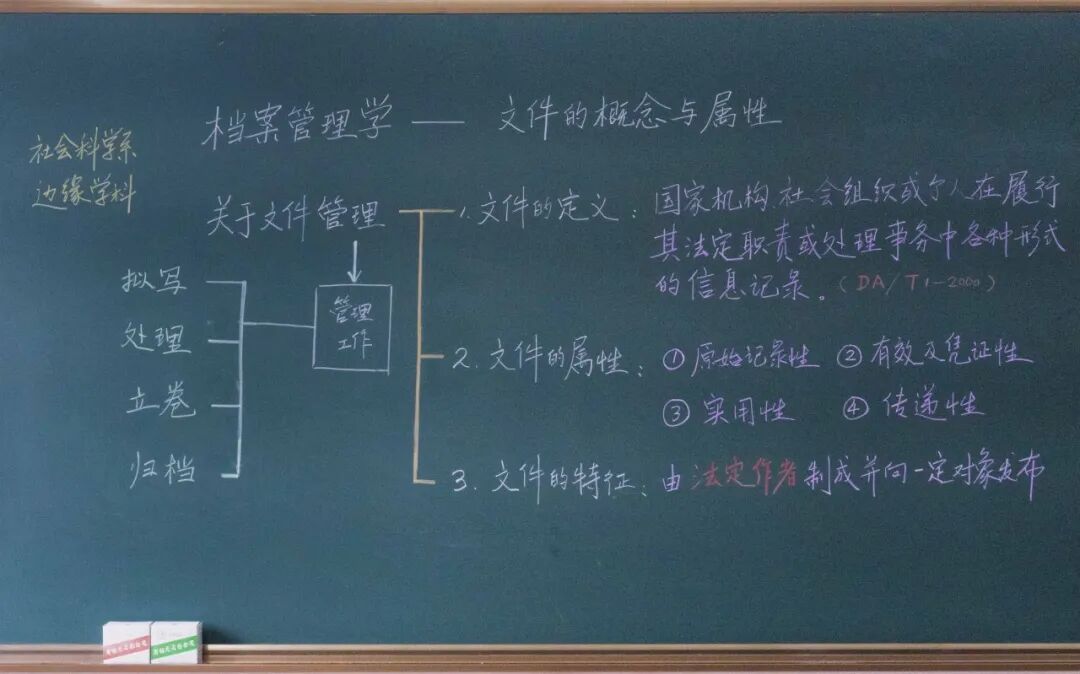 档案管理学 — 文件的概念与属性
社会科学系
边缘学科
关于文件管理
管理
工作
拟写
处理
立卷
归档
1.文件的定义：国家机构、社会组织或个人在履行
其法定职责或处理事务中各种形式
的信息记录。（DA/T1-2000）
2.文件的属性：①原始记录性 ②有效及凭证性
③实用性 ④传递性
3.文件的特征：由法定作者制成并向一定对象发布